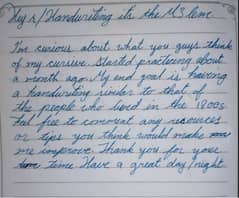 Hey r/Handwriting its the M3 leme
I'm curious about what you guys think
of my cursive. Started practicing about
a month ago. My end goal is having
a handwriting similer to that of
the people who lived in the 1800s.
Feel free to comount any resources
or tips you think would make
me improve. Thank you for your
time. Have a great day/night